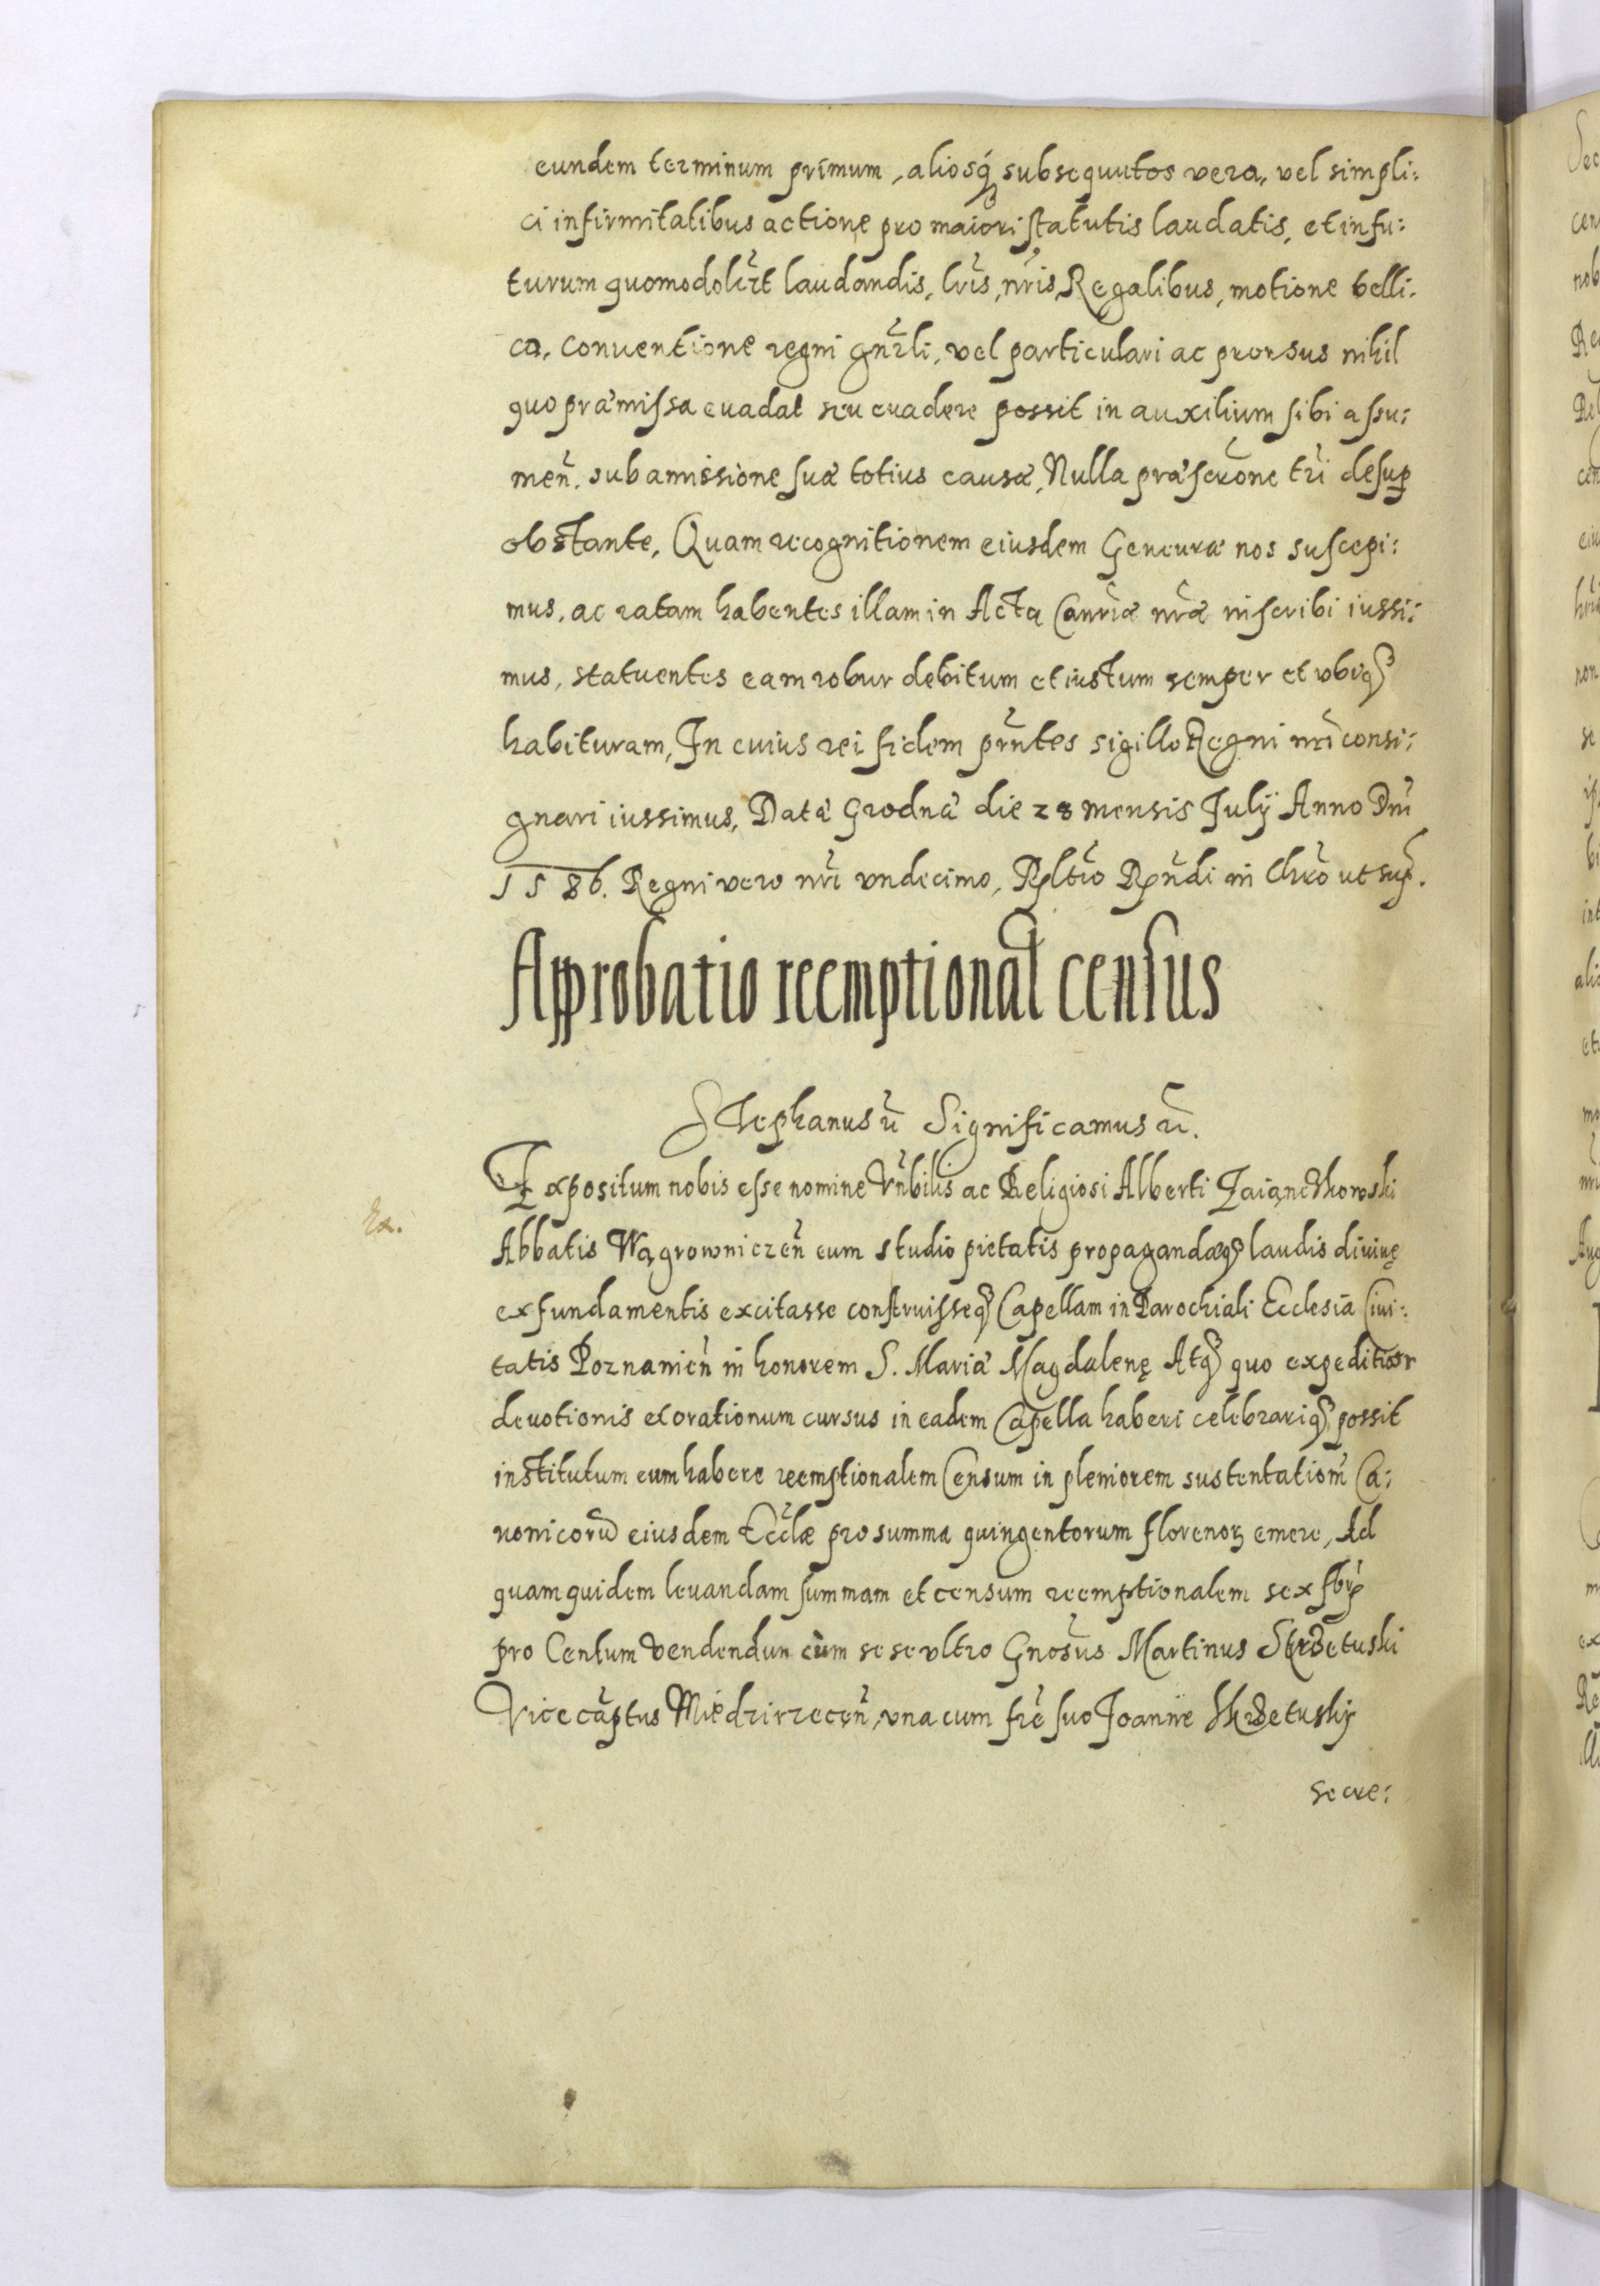 eundem terminum primum, aliosq́ subsequutos vera, vel simpli:
ci infirmitatibus actione pro maiori statutis laudatis, et in fu:
turum quomodolibt laudandis, lris, nris, Regalibus, motione belli:
ca, conuentione regni gnrli, vel particulari ac prorsus nihil
quo præmissa euadat seu euadere possit in auxilium sibi assu:
men. sub amissione suæ totius causæ, Nulla præscrone tri desup
obstante, Quam recognitionem eiusdem Geneuræ nos suscepi:
mus, ac ratam habentes illam in Acta Canriæ nræ inscribi iussi:
mus, statuentes eam robur debitum et iustum semper et vbiq
habituram, In cuius rei fidem prntes sigillo Regni nri consi:
gnari iussimus, Datæ Grodnæ die 28 mensis July Anno Dni
1586. Regni vero nri vndecimo, Rltio Rndi in Chro ut sup.
Approbatio reemptional census
Stephanus rc Significamus rc.
Expositum nobis esse nomine Vnbilis ac Religiosi Alberti Zaiączkowski
Ex.
Abbatis Wągrowniczen eum studio pietatis propagandæq laudis diuinę
ex fundamentis excitasse construisseq Capellam in Parochiali Ecclesia Ciui:
tatis Poznanien in honorem S. Mariæ Magdalenę Atq quo expeditior
deuotionis et orationum cursus in eadem Capella haberi celebrariq possit
institutum eum habere reemptionalem Censum in pleniorem sustentationem Ca:
nonicoru eiusdem Ecclæ pro summa quingentorum florenor emere, Ad
quam quidem leuandam summam et censum reemptionalem sex flor
pro Centum vendendun cum se se vltro Gnosus Martinus Skrzetuski
Vice captus Miedzirzecen, vna cum fre suo Joanne Skrzetusky
secre: